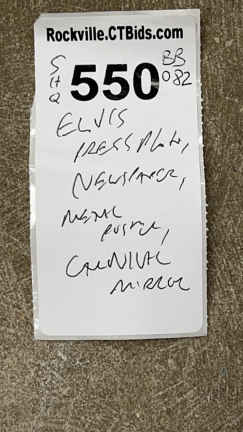 Rockville.CTBids.com
SHQ 550 BB 082
ELVIS
PRESS PLATE,
NEWSPAPER,
METAL
POSTER,
CARNIVAL
MIRROR